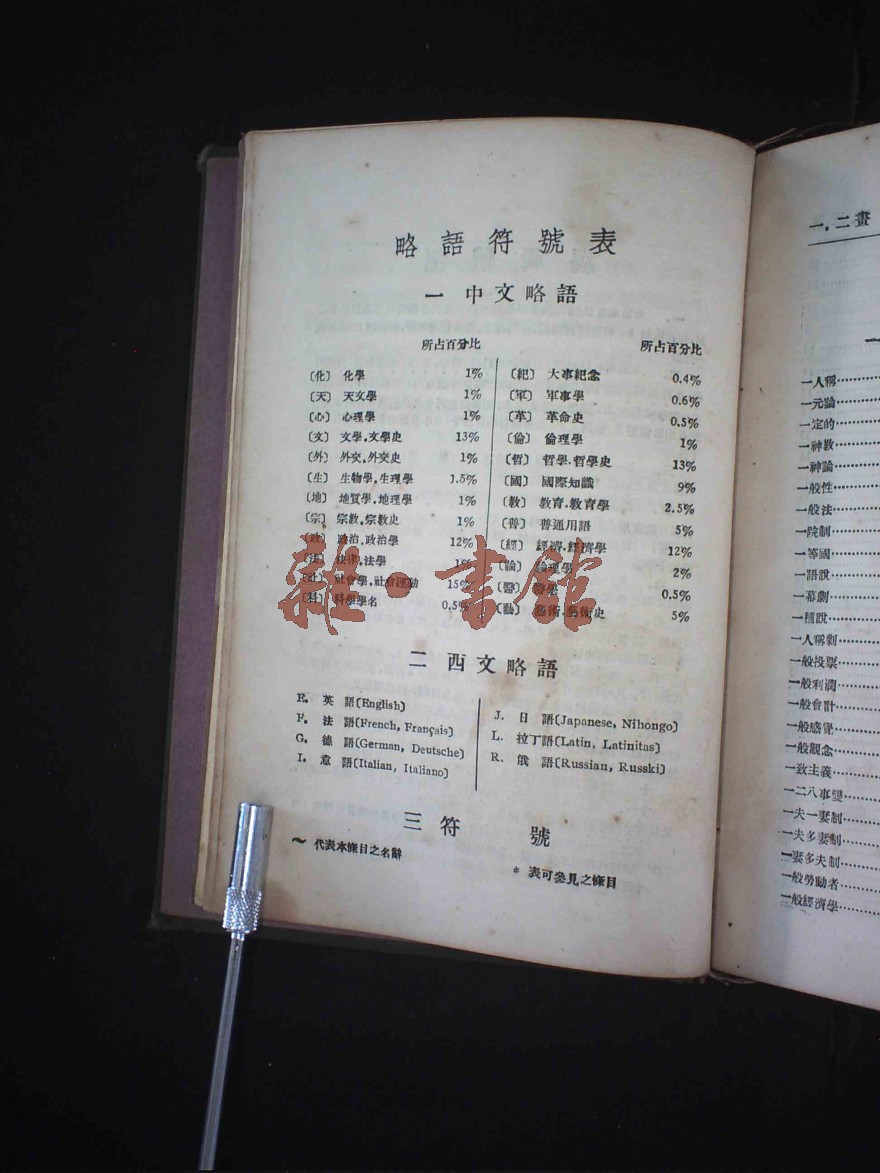 略語符號表
一 中文略語
所占百分比
〔化〕 化學 1%
〔天〕 天文學 1%
〔心〕 心理學 1%
〔文〕 文學,文學史 13%
〔外〕 外交,外交史 1%
〔生〕 生物學,生理學 1.5%
〔地〕 地質學,地理學 1%
〔宗〕 宗教,宗教史 1%
〔政〕 政治,政治學 12%
〔法〕 法律,法學 1%
〔社〕 社會學,社會運動 15%
〔科〕 科學學名 0.5%
所占百分比
〔紀〕 大事紀念 0.4%
〔軍〕 軍事學 0.6%
〔革〕 革命史 0.5%
〔倫〕 倫理學 1%
〔哲〕 哲學,哲學史 13%
〔國〕 國際知識 9%
〔教〕 教育,教育學 2.5%
〔普〕 普通用語 5%
〔經〕 經濟,經濟學 12%
〔論〕 論理學 2%
〔醫〕 醫學 0.5%
〔藝〕 藝術,藝術史 5%
二 西文略語
E. 英 語(English)
F. 法 語(French, Français)
G. 德 語(German, Deutsche)
I. 意 語(Italian, Italiano)
J. 日 語(Japanese, Nihongo)
L. 拉丁語(Latin, Latinitas)
R. 俄 語(Russian, Russki)
三 符 號
~ 代表本條目之名辭
* 表可參見之條目
雜·書館
一,二畫
一
一人稱
一元論
一定的
一神教
一神論
一般性
一般法
一院制
一等國
一語說
一幕劇
一種說
一人稱劇
一般投票
一般利潤
一般會計
一般感覺
一般觀念
一致主義
一二八事變
一夫一妻制
一夫多妻制
一妻多夫制
一般勞動者
一般經濟學